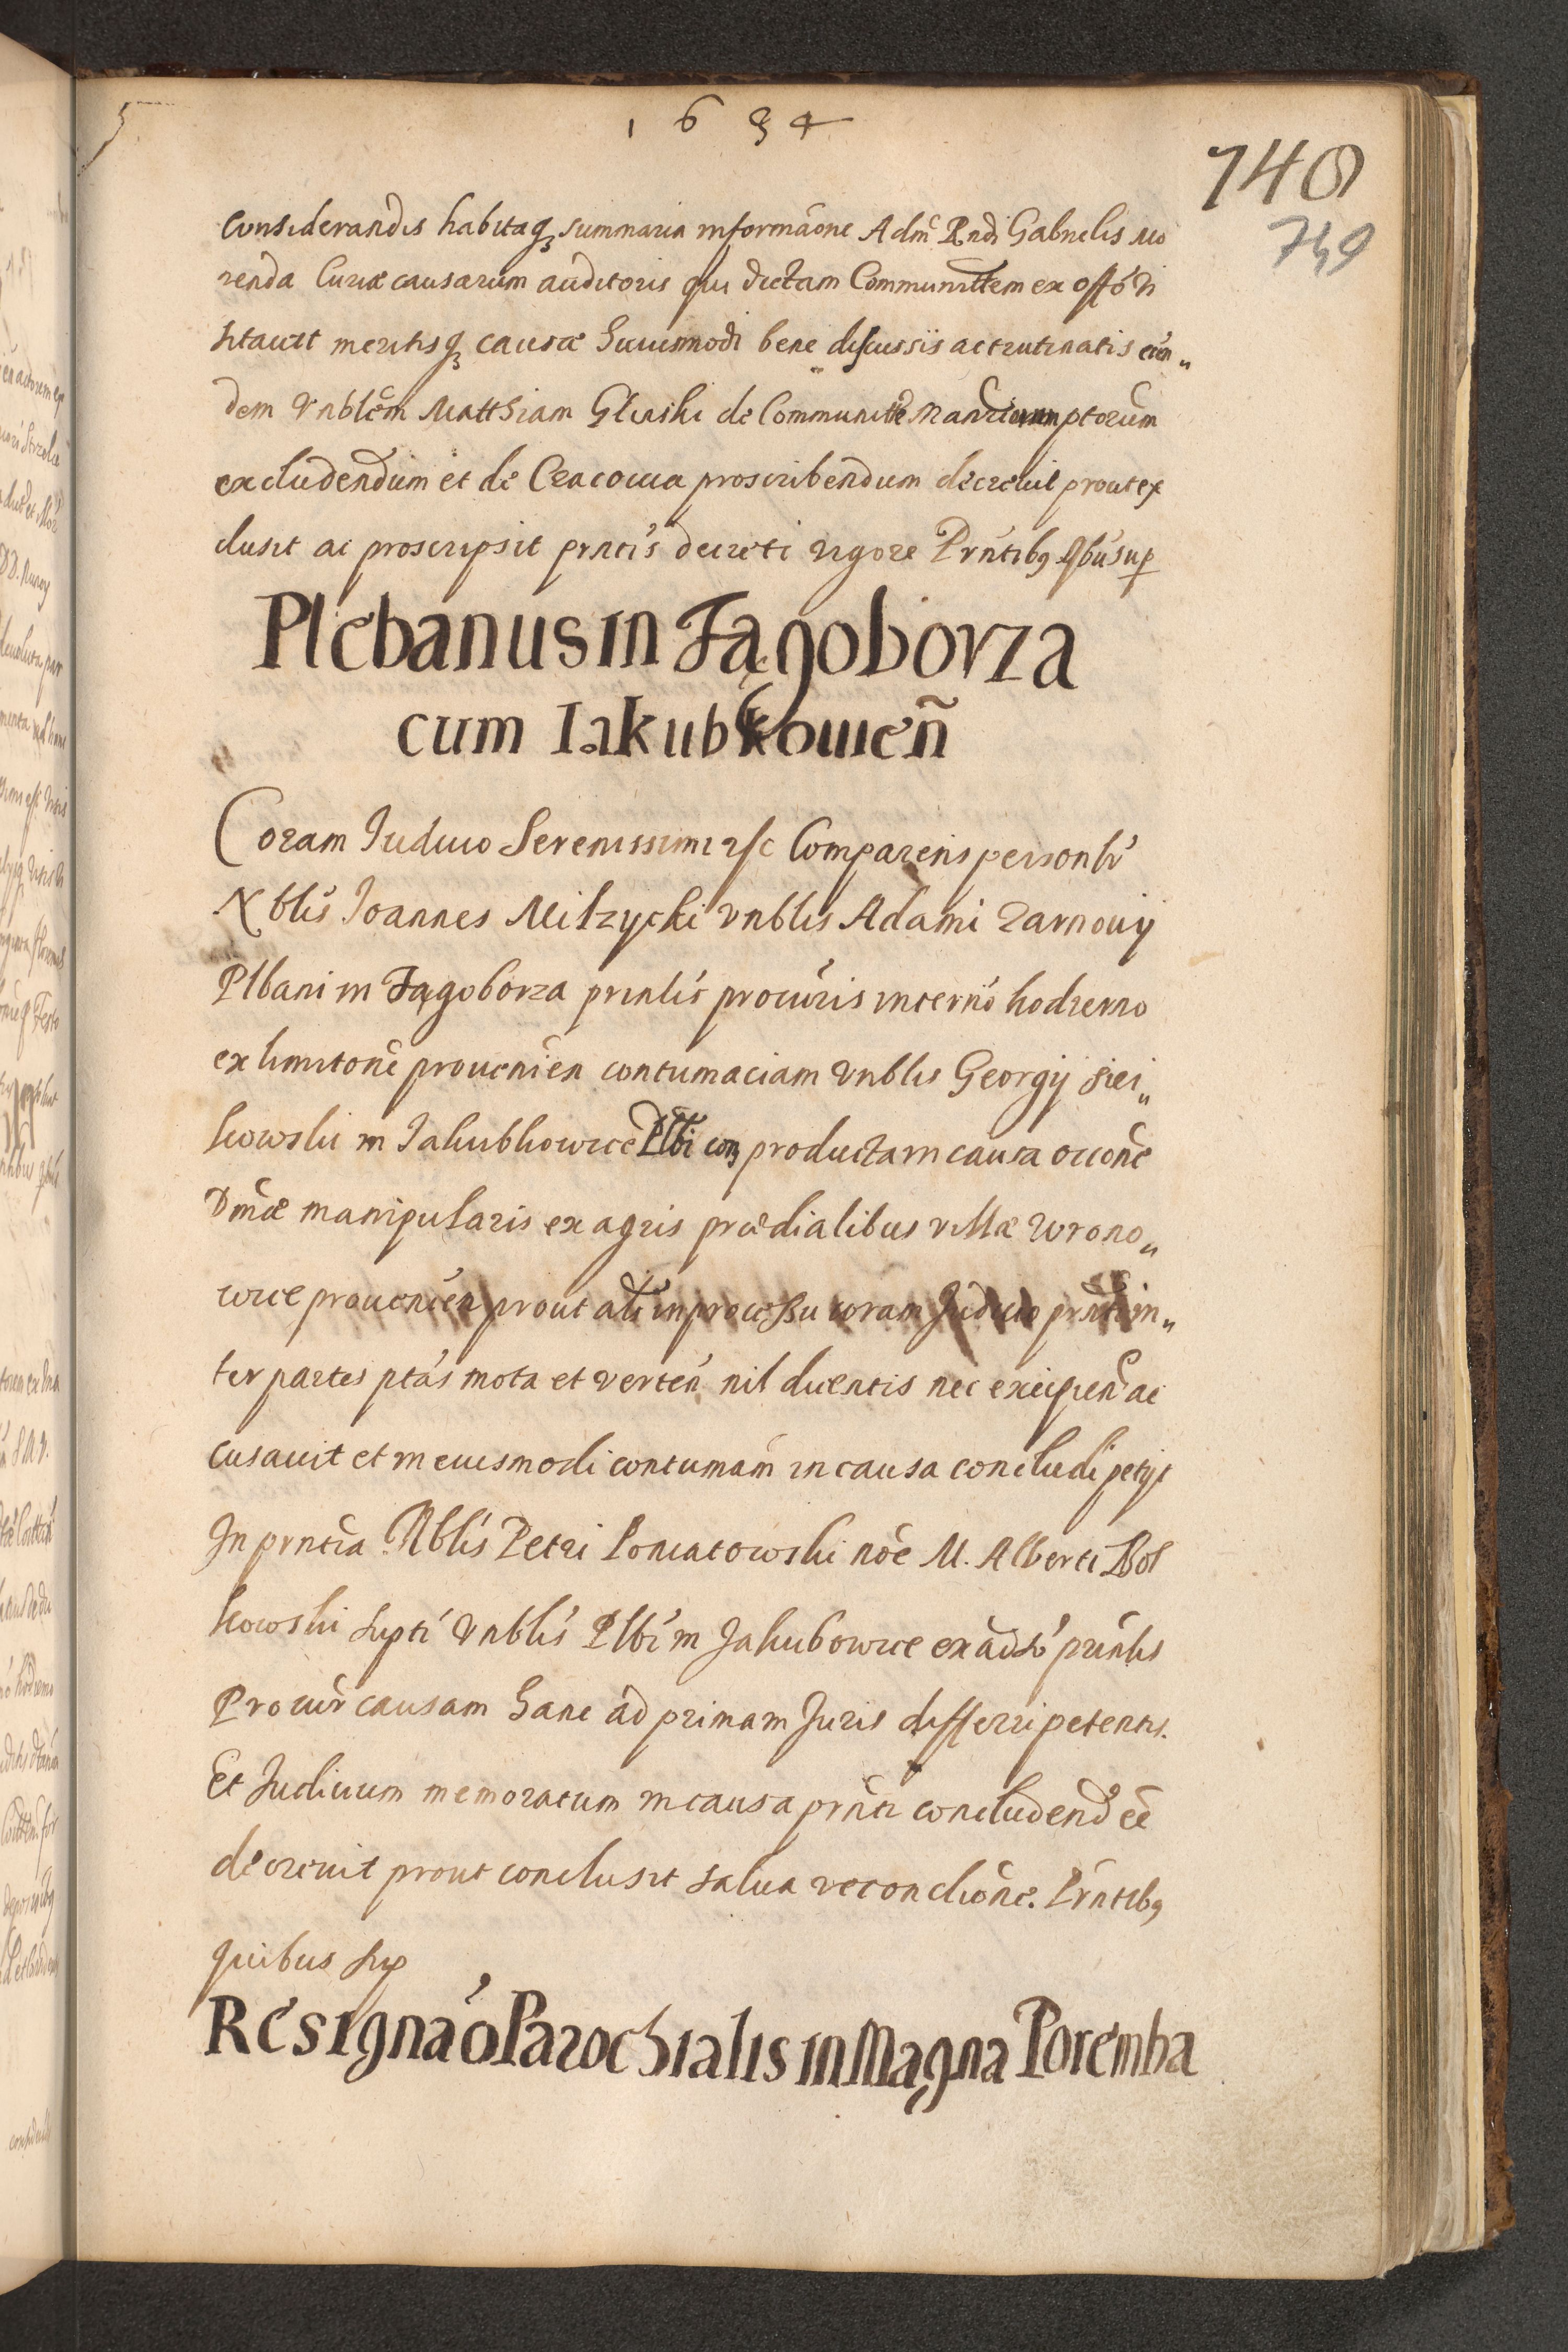 1634
740
749
Considerandis habitaq₃ summaria informaõne Adm̃ Rndi Gabrielis Mo
renda Curiæ causarum auditoris qui dictam Communittem ex offõ vi
sitauit meritisq₃ causæ huiusmodi bene discussis ac trutinatis eun„
dem Vnblem Matthiam Gliński de Communitte Mansionariptorum
excludendum et de Cracouia proscribendum decreuit prout ex
clusit ac proscripsit prntis decreti vigore Prntibꝫ Qbus sup
Plebanus in Jągoborza
cum Iakubkowicen̄
Coram Iudicio Serenissimi etc Comparens personlr
Nblis Joannes Milzycki Vnblis Adami Zarnouij
Plbani in Jągoborza prinlis procuris in term̃o hodierno
ex limitone prouenien contumaciam Vnblis Georgij Siei„
kowski in Jakubkowice Plbi con productam causa occõne
Dmæ manipularis ex agris prædialibus villæ Wrono„
wice prouenien prout alr in processu coram Judicio prnti in„
ter partes ptas mota et verten nil dicentis nec excipien ac
cusauit et in euismodi contumam in causa concludi petijt
In prntia Nblis Petri Poniatowski noe M. Alberti Bol
kowski supti Vnblis Plbi in Jakubowice ex adso prinlis
Procur causam hanc ad primam Juris differri petentis.
Et Judicium memoratum in causa prnti concludend eẽ
decreuit prout conclusit salua reconclione. Prntibꝫ
quibus sup
Resignaõ Parochialis in Magna Poremba